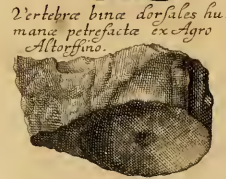 Vertebræ binæ dorsales hu
manæ petrefactæ ex Agro
Altorffino.